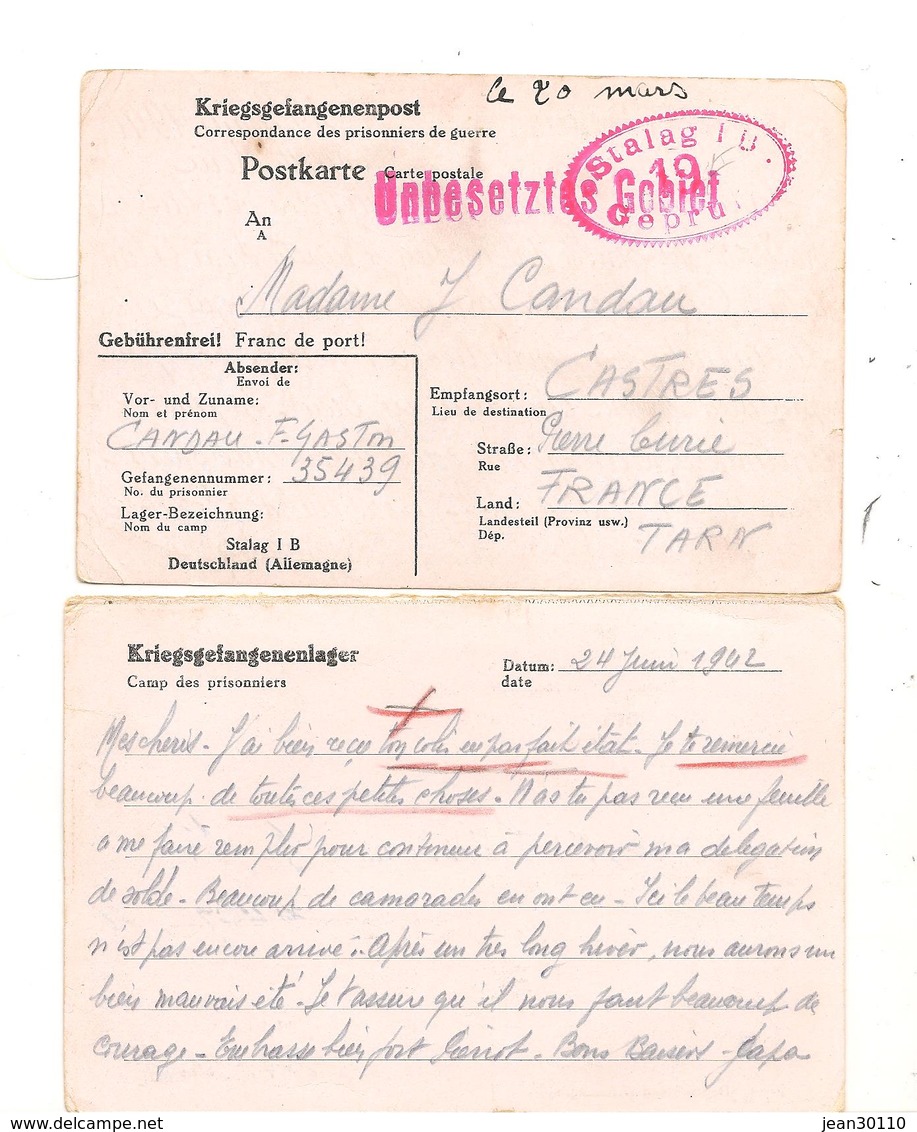 le 20 mars
Kriegsgefangenenpost
Correspondance des prisonniers de guerre
Stalag I B.
19
Geprü
Postkarte Carte postale
Unbesetztes Gebiet
An
A
Madame J Candau
Gebührenfrei! Franc de port!
Absender:
Envoi de
Vor- und Zuname:
Nom et prénom
CANDAU - F-GASTON
Gefangenennummer: 35439
No. du prisonnier
Lager-Bezeichnung:
Nom du camp
Stalag I B
Deutschland (Allemagne)
Empfangsort: CASTRES
Lieu de destination
Straße: Pierre Curie
Rue
Land: FRANCE
Landesteil (Provinz usw.)
Dép. TARN
Kriegsgefangenenlager
Camp des prisonniers
Datum: 24 Juin 1942
date
Mes cheris - J'ai bien reçu ton colis en parfait état. Je te remercie
beaucoup de toutes ces petites choses. N'as tu pas reçu une feuille
a me faire remplir pour continuer à percevoir ma delegation
de solde - Beaucoup de camarades en ont eu - Ici le beau temps
n'est pas encore arrivé. Après un tres long hiver, nous aurons un
bien mauvais été. Je t'assure qu'il nous faut beaucoup de
courage - Embrasse bien fort Pierrot. Bons Baisers - Papa
jean30110